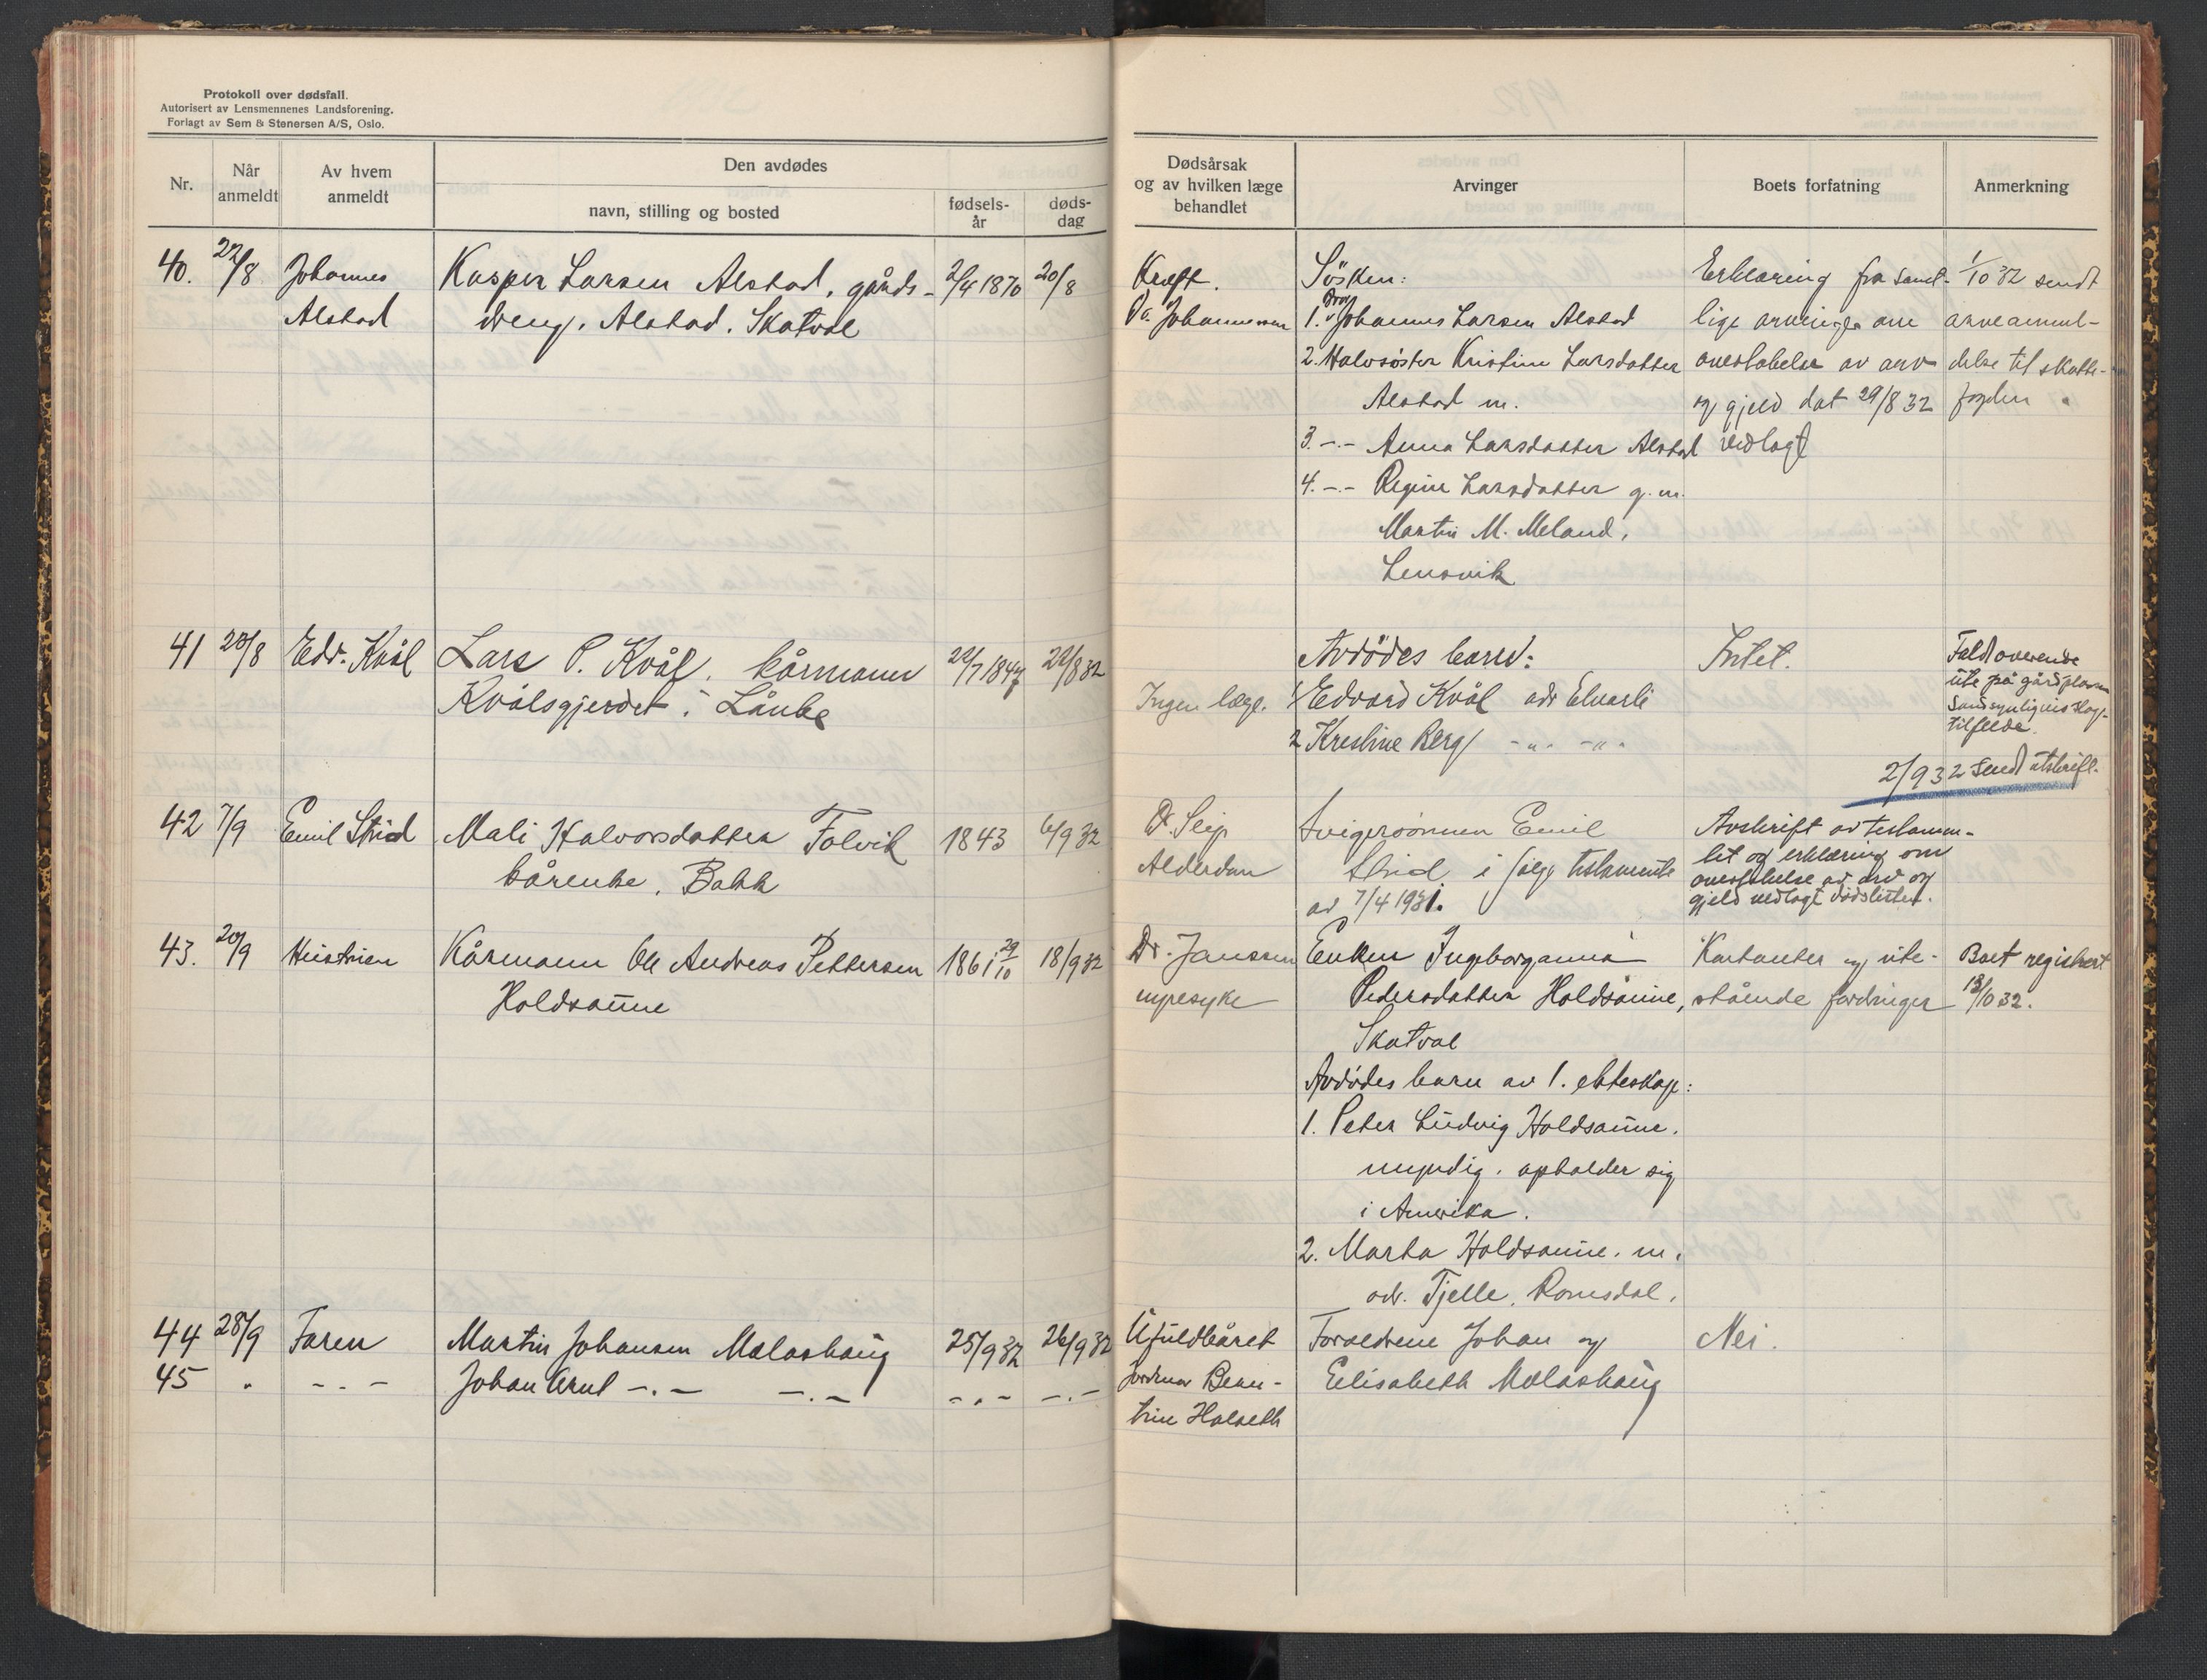 Protokoll over dødsfall.
Autorisert av Lensmennenes Landsforening.
Forlagt av Sem & Stenersen A/S, Oslo.
Nr.
Når anmeldt
Av hvem anmeldt
Den avdødes
navn, stilling og bosted
fødsels-år
døds-dag
Dødsårsak og av hvilken læge behandlet
Arvinger
Boets forfatning
Anmerkning
40. 22/8 Johannes Alstad
Kasper Larsen Alstad, gårds-
dreng, Alstad. Skatval
2/4 1870 20/8
Kræft.
Dr. Johannessen
Søsken:
1. Bror Johannes Larsen Alstad
2. Halvsøster Kristine Larsdatter
Alstad m.
3. -.- Anna Larsdatter Alstad
4. -.- Regine Larsdatter g.m.
Martin M. Meland,
Lensvik
Erklæring fra samt-
lige arvinger om
overtakelse av arv
og gjeld dat 29/8 32
vedlagt
1/10 32 sendt
arveanmel-
delse til skatte-
fogden
41 23/8 Edv. Kvål
Lars P. Kvål. kårmann
Kvålsgjerdet i Lånke
22/7 1847 22/8 32
Ingen læge.
Avdødes barn:
1 Edvard Kvål adr Elvarli
2 Kristine Berg -"- -"-
Intet.
Faldt overende
ute på gårdsplassen
Sandsynligvis slag-
tilfelde.
2/9 32 sendt utskrift.
42 7/9 Emil Strid
Mali Halvorsdatter Folvik
kårenke, Bakk
1843 6/9 32
Dr. Seip
Alderdom
Svigersønnen Emil
Strid i følge testamente
av 7/4 1931.
Avskrift av testamen-
tet og erklæring om
overtakelse av arv og
gjeld vedlagt dødslisten.
43. 20/9 Hustruen
Kårmann Ole Andreas Pettersen
Holdsaune
1861 29/10 18/9 32
Dr. Janssen
nyresyke
Enken Ingborganna
Pedersdatter Holdsaune,
Skatval
Avdødes barn av 1. ekteskap:
1. Peter Ludvig Holdsaune.
myndig. opholder sig
i Amerika.
2. Marta Holdsaune. m.
adr. Tjelle, Romsdal.
Kontanter og ute-
stående fordringer
Boet registrert
13/10 32.
44 28/9 Faren
Martin Johansen Mælashaug
25/9 32 26/9 32
45 " -.-
Johan Arnt -.- -.-
-.- -.-
Ufuldbåret
Jordmor Beren-
trine Halseth
Foreldrene Johan og
Elisabeth Mælashaug
Nei.